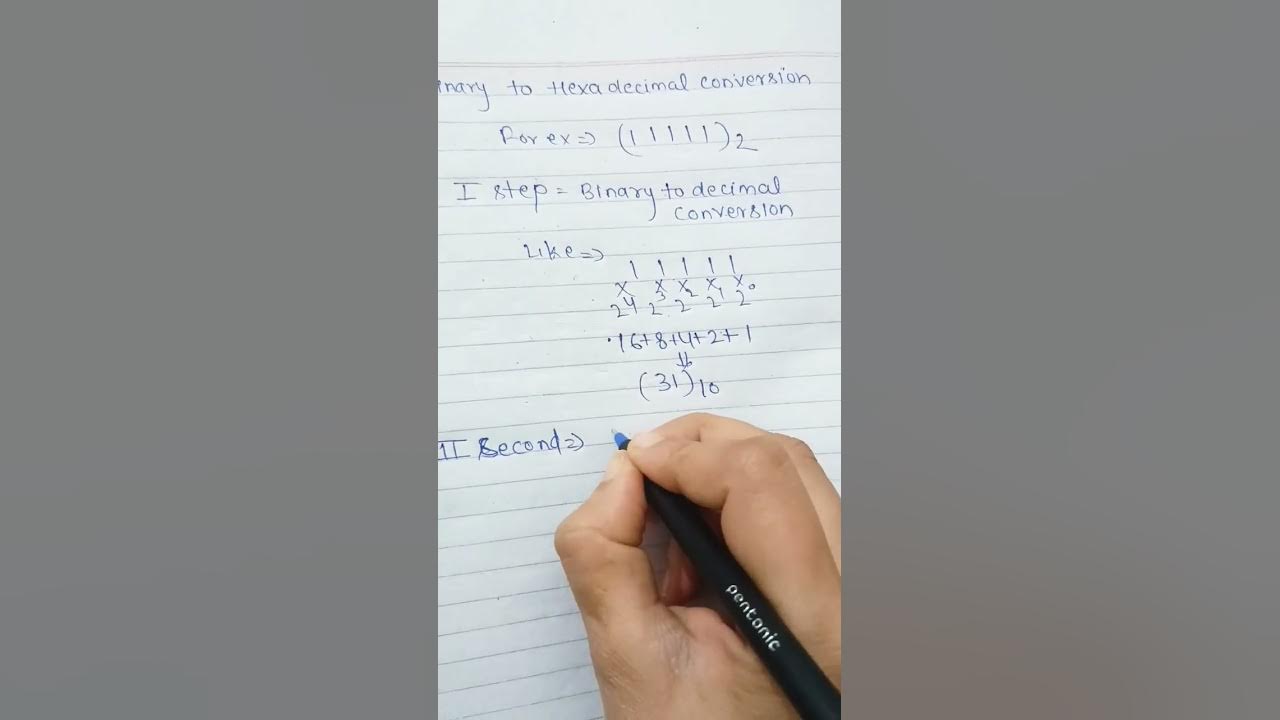 inary to Hexadecimal conversion
For ex⇒ (11111)2
I step = Binary to decimal
conversion
Like⇒
1 1 1 1 1
x x x x x
2⁴ 2³ 2² 2¹ 2⁰
16+8+4+2+1
⇓
(31)10
II Second⇒
pentonic